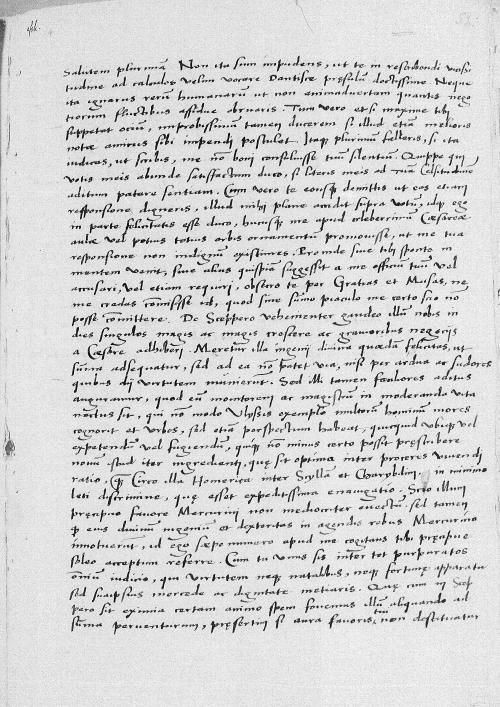 Salutem plurimam Non ita sum impudens, ut te in rescribendi vicissi
tudine ad calculos velim vocare Dantisce pręsulum doctissime. Neque
ita ignarus rerum humanarum ut non animadvertam quantis nego
tiorum fluctibus assidue obruaris. Tum vero etsi maxime tibi
suppetat ocium, improbissimum tamen ducerem si illud etiam melioris
notae amicus sibi impendi postulet. Itaque plurimum falleris, si ita
iudicas, ut scribis, me non boni consuluisse tuum silentium. Quippe qui
votis meis abunde satisfactum duco, si literis meis ad tuam Celsitudine
aditum patere sentiam. Cum vero te eousque demittis ut eas etiam
responsione digneris, illud mihi plane accidit supra votum, idque ego
in parte felicitatis esse duco, hucusque me apud celeberrimum Caesareae
aulae vel potius totius orbis ornamentum promovisse, ut me tua
responsione non indignum existimes. Proinde sive tibi sponte in
mentem venit, sive alius quispiam suggessit a me officium tuum vel
accusari, vel etiam requiri, obsecro te per Gratias et Musas, ne
me credas commisisse id, quod sine summo piaculo me certo scio non
posse committere. De Sceppero vehementer gaudeo illum nobis in
dies singulos magis ac magis crescere ac gravioribus negociis
a Caesare adhiberi. Meretur illa ingenii divina quaedam felicitas, ut
summa adsequatur, sed ad ea non patet via, nisi per ardua ac sudores
quibus dii virtutem munierunt. Sed illi tamen faciliores aditus
auguramur, quod eum monitorem ac magistrum in moderanda vita
nactus sit, qui non modo Ulyssis exemplo multorum hominum mores
cognorit et urbes, sed etiam perspectum habeat, quicquid ubique vel
expetendum vel fugiendum, quique non minus certo possit pręscribere
novum istud iter ingredienti, quę sit optima inter proceres vivendi
ratio, quam Circe illa Homerica inter Scyllam et Charybdim, in minimo
leti discrimine, quę esset expeditissima enavigatio. Scio illum
pręcipuo favore Mercurii non mediocriter evectum. sed tamen
quod eius divinum ingenium et dexteritas in agendis rebus Mercurio
innotuerint, id ego saepenumero apud me cogitans tibi pręcipue
soleo acceptum referre. Cum tu unus sis inter tot purpuratos
omnium iudicio, qui virtutem neque natalibus, neque fortunę apparatu
sed suapsius mercede ac dignitate metiaris. Quę cum in Scep
pero sit eximia certam animo spem fovemus illum aliquando ad
summa perventurum, pręsertim si aura favoris tui non destituatur